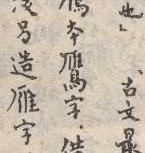 也」　古文最
鴈本鴈字借
後另造雁字